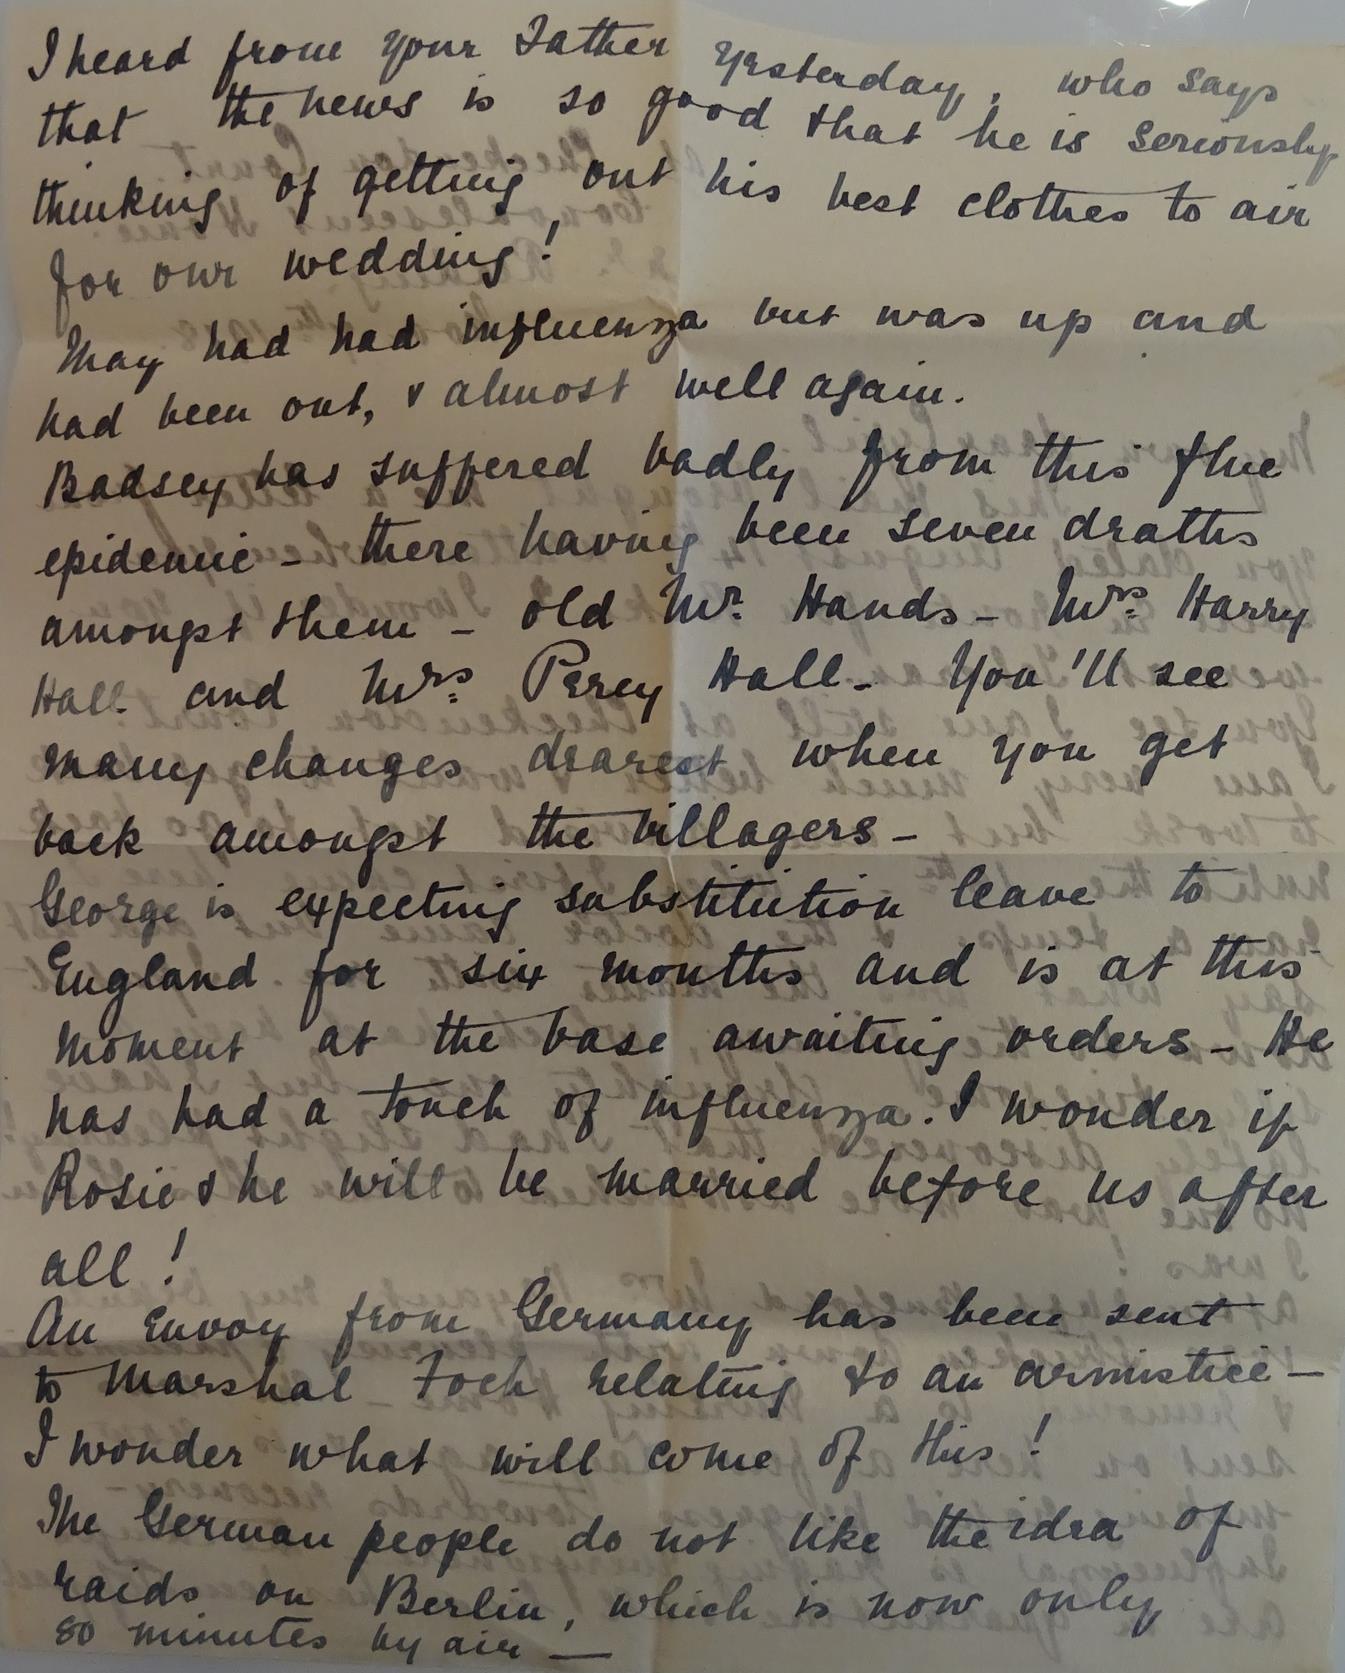 I heard from your Father yesterday, who says
that the news is so good that he is seriously
thinking of getting out his best clothes to air
for our wedding!
May had had influenza but was up and
had been out, & almost well again.
Badsey has suffered badly from this flue
epidemic - there having been seven deaths
amongst them - old Mr. Hands - Mrs. Harry
Hall and Mrs. Percy Hall - You'll see
many changes dearest when you get
back amongst the villagers -
George is expecting substitution leave to
England for six months and is at this
moment at the base awaiting orders - He
has had a touch of influenza. I wonder if
Rosie & he will be married before us after
all!
An Envoy from Germany has been sent
to Marshal Foch relating to an armistice -
I wonder what will come of this!
The German people do not like the idea of
raids on Berlin, which is now only
80 minutes by air -